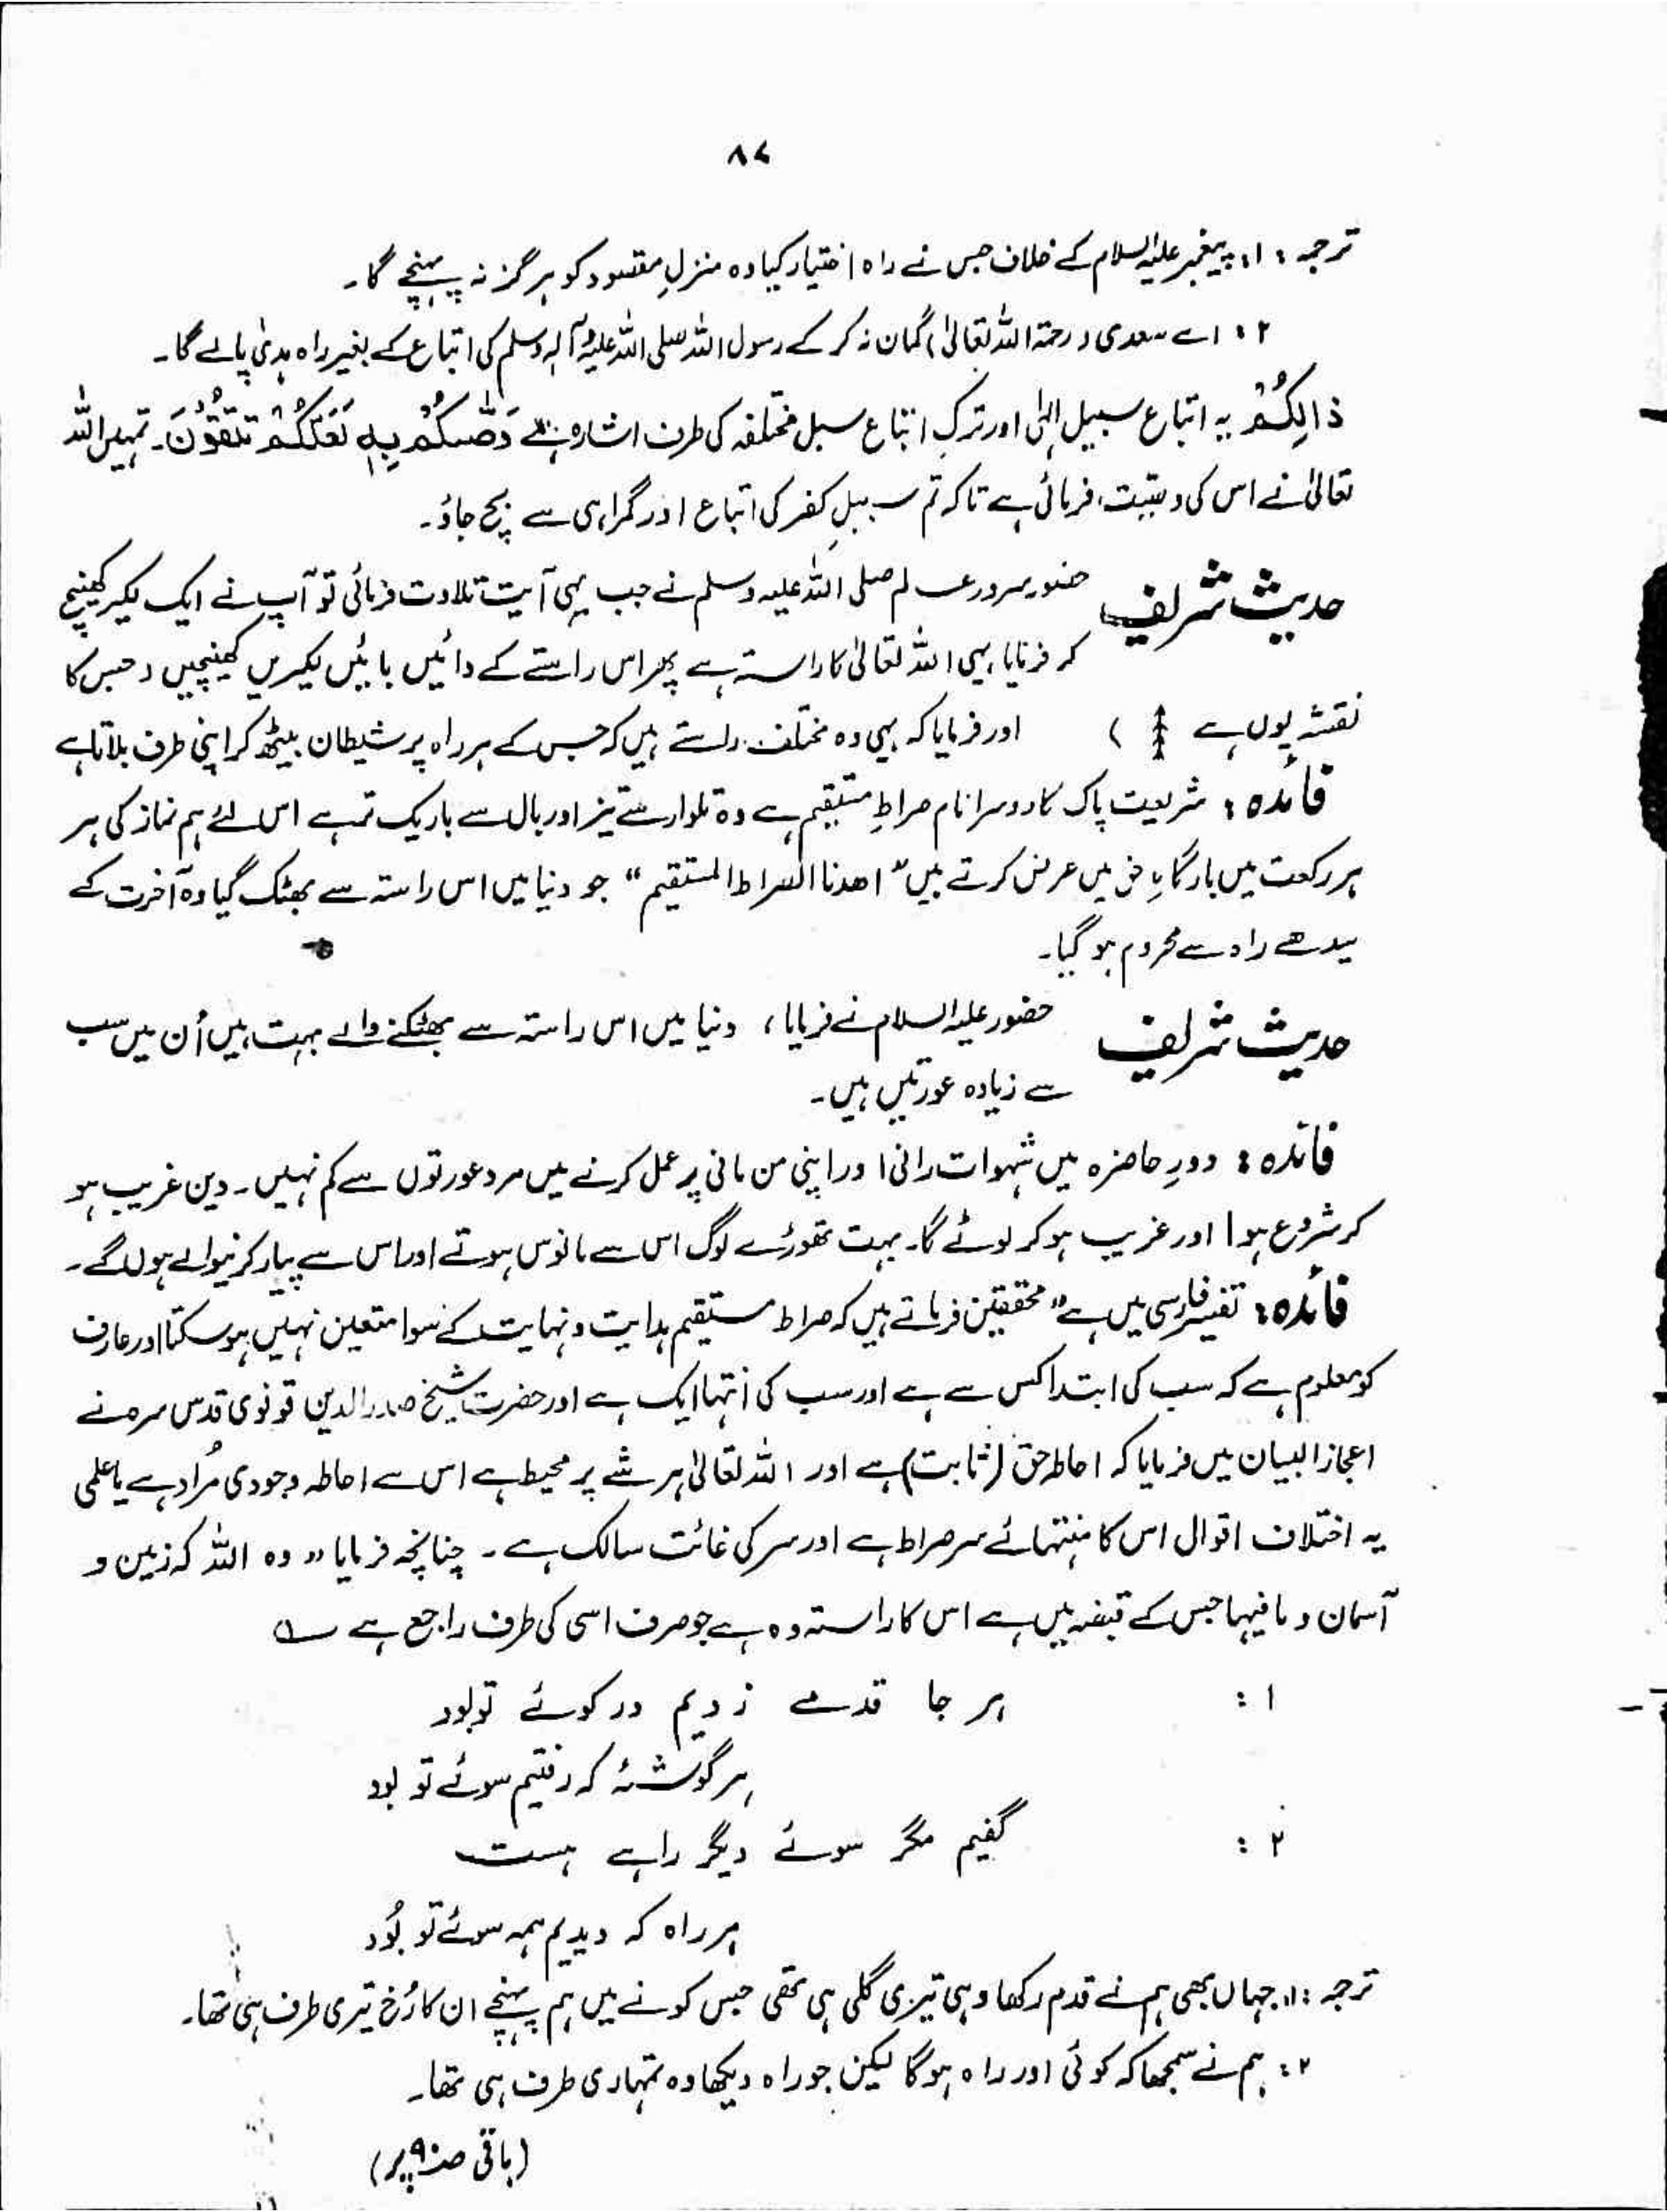 ۸۷
ترجمہ: ۱: پیغمبر علیہ السلام کے خلاف جس نے راہ اختیار کیا وہ منزلِ مقصود کو ہرگز نہ پہنچے گا۔
۲: اے سعدی (رحمۃ اللہ تعالیٰ) گمان نہ کر کے رسول اللہ صلی اللہ علیہ وآلہ وسلم کی اتباع کے بغیر راہ ہدیٰ پالے گا۔
ذَالِكُمْ یہ اتباع سبیل الٰہی اور ترکِ اتباع سبل مختلفہ کی طرف اشارہ ہے وَصّٰىكُمْ بِهٖ لَعَلَّكُمْ تَتَّقُوْنَ۔ تمہیں اللہ
تعالیٰ نے اس کی وصیّت فرمائی ہے تاکہ تم سبیلِ کفر کی اتباع اور گمراہی سے بچ جاؤ۔
حدیث شریف حضور سرور عالم صلی اللہ علیہ وسلم نے جب یہی آیت تلاوت فرمائی تو آپ نے ایک لکیر کھینچ
کر فرمایا یہی اللہ تعالیٰ کا راستہ ہے پھر اس راستے کے دائیں بائیں لکیریں کھینچیں (جس کا
نقشہ یوں ہے ) اور فرمایا کہ یہی وہ مختلف راستے ہیں کہ جس کے ہر راہ پر شیطان بیٹھ کر اپنی طرف بلاتا ہے
فائدہ: شریعت پاک کا دوسرا نام صراطِ مستقیم ہے وہ تلوار سے تیز اور بال سے باریک تر ہے اس لئے ہم نماز کی ہر
ہر رکعت میں بارگاہِ حق میں عرض کرتے ہیں "اھدنا الصراط المستقیم" جو دنیا میں اس راستہ سے بھٹک گیا وہ آخرت کے
سیدھے راہ سے محروم ہو گیا۔
حدیث شریف حضور علیہ السلام نے فرمایا، دنیا میں اس راستہ سے بھٹکنے والے بہت ہیں اُن میں سب
سے زیادہ عورتیں ہیں۔
فائدہ: دورِ حاضرہ میں شہوات رانی اور اپنی من مانی پر عمل کرنے میں مرد عورتوں سے کم نہیں۔ دین غریب ہو
کر شروع ہوا اور غریب ہو کر لوٹے گا۔ بہت تھوڑے لوگ اس سے مانوس ہوتے اور اس سے پیار کرنیوالے ہوں گے۔
فائدہ: تفسیر فارسی میں ہے "محققین فرماتے ہیں کہ صراط مستقیم ہدایت و نہایت کے سوا متعین نہیں ہو سکتا اور عارف
کو معلوم ہے کہ سب کی ابتدا کس سے ہے اور سب کی انتہا ایک ہے اور حضرت شیخ صدر الدین قونوی قدس سرہ نے
اعجاز البیان میں فرمایا کہ احاطہ حق (ثابت) ہے اور اللہ تعالیٰ ہر شے پر محیط ہے اس سے احاطہ وجودی مُراد ہے یا علمی
یہ اختلاف اقوال اس کا منتہائے ہر صراط ہے اور ہر کی غائت سالک ہے۔ چنانچہ فرمایا "وہ اللہ کہ زمین و
آسمان و مافیہا جس کے قبضہ میں ہے اس کا راستہ وہ ہے جو صرف اسی کی طرف راجع ہے ؎
۱: ہر جا قدمے زدیم در کوئے تو بود
ہر گوشۂ کہ رفتیم سوئے تو بود
۲: گفیم مگر سوئے دیگر راہے ہست
ہر راہ کہ دیدیم ہمہ سوئے تو بُود
ترجمہ: ۱: جہاں بھی ہم نے قدم رکھا وہی تیری گلی ہی تھی جس کونے میں ہم پہنچے ان کا رُخ تیری طرف ہی تھا۔
۲: ہم نے سمجھا کہ کوئی اور راہ ہو گا لیکن جو راہ دیکھا وہ تمہاری طرف ہی تھا۔
(باقی صـ۹۰ پر)